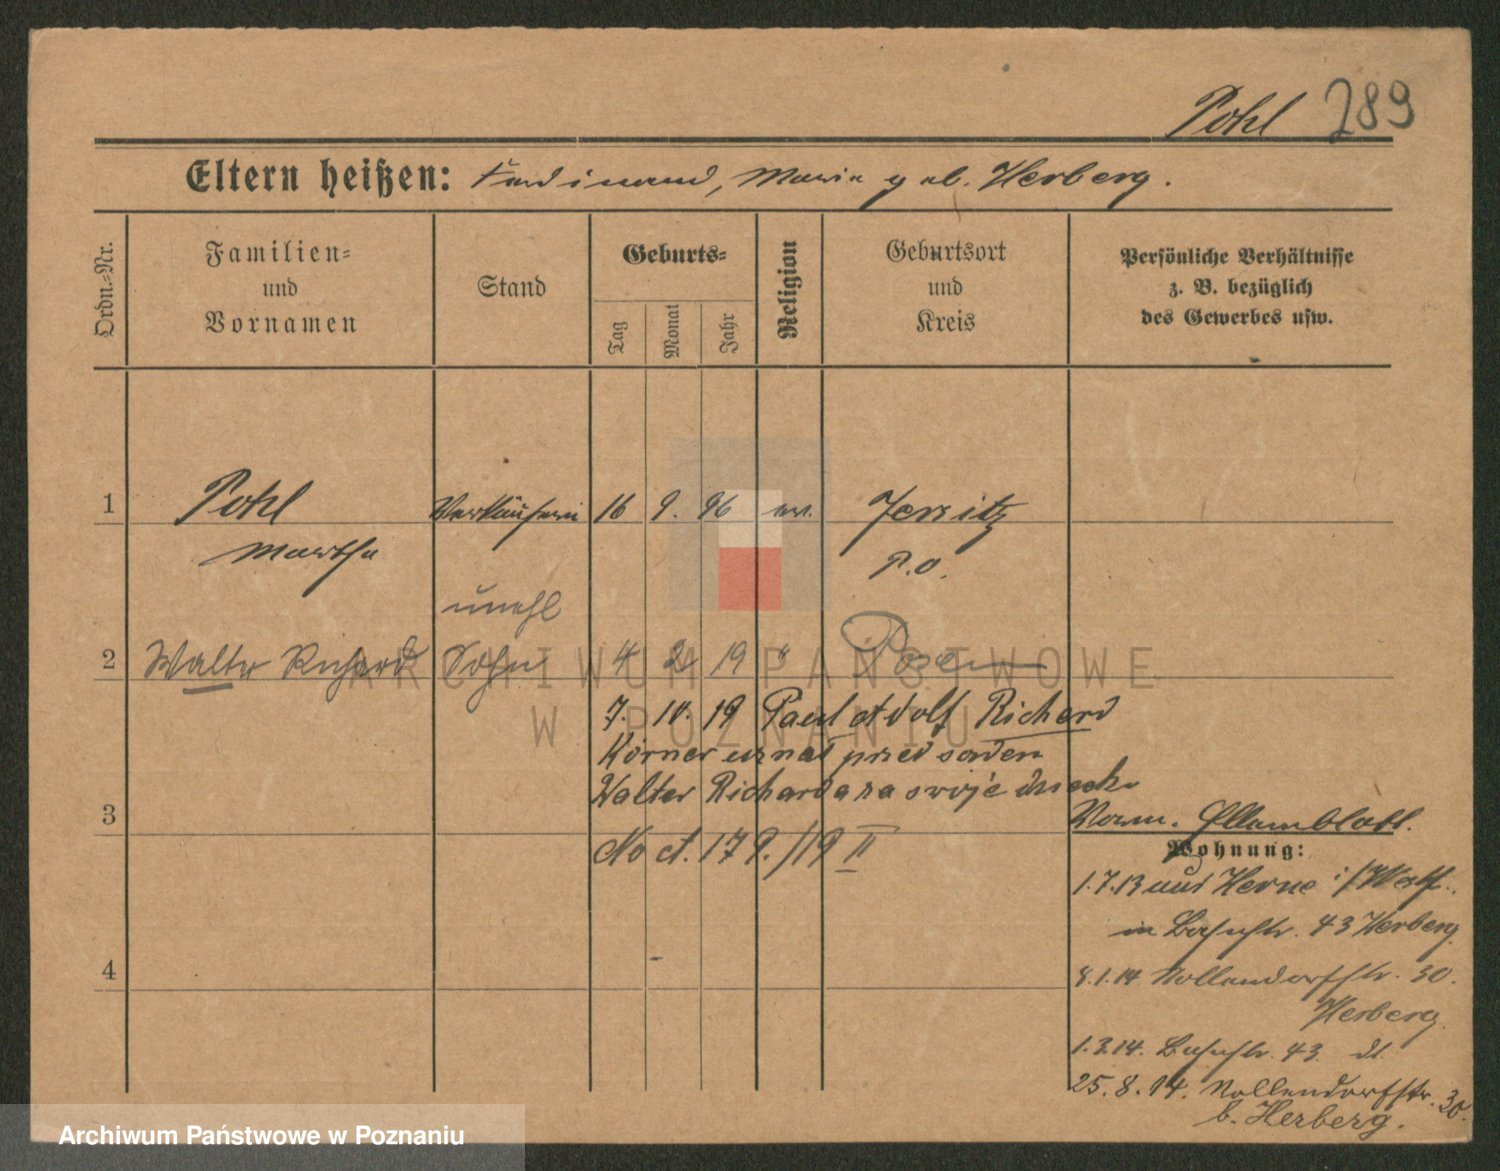 Pohl 289
Eltern heißen: Ferdinand, Maria geb. Herberg.
Ordn.-Nr.
Familien-
und
Vornamen
Stand
Geburts-
Tag
Monat
Jahr
Religion
Geburtsort
und
Kreis
Persönliche Verhältnisse
z. B. bezüglich
des Gewerbes usw.
1 Pohl Verkäuferin 16 9. 96 ev. Jersitz
Martha P.O.
unehl
2 Walter Richard Sohn 4 2 19 " Posen
ARCHIWUM PAŃSTWOWE
W POZNANIU
7. 10. 19 Paul Adolf Richard
Körner uznał przed sądem
Walter Richarda za swoje dziecko
3
No A. 179./19 II
Vorm. Ellernblatt.
Wohnung:
1.7.13 aus Herne i/Westf.
in Bahnstr. 43 Herberg.
8.1.14 Nollendorfstr. 30.
Herberg.
4
1.3.14. Bahnstr. 43 dt.
25.8.14. Nollendorfstr. 30.
b. Herberg.
Archiwum Państwowe w Poznaniu